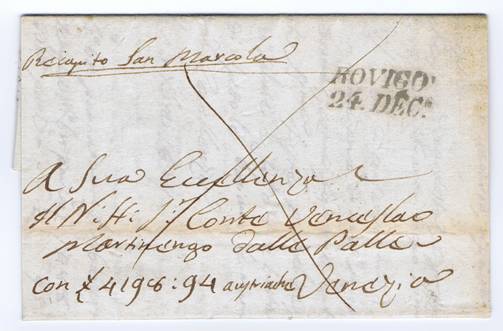 Recapito San Marcola
ROVIGO
24. DEC.
A Sua Eccellenza
Il N. H. Sr. Conte Venceslao
Martinengo dalle Palle
con £ 4198:94 austriache Venezia